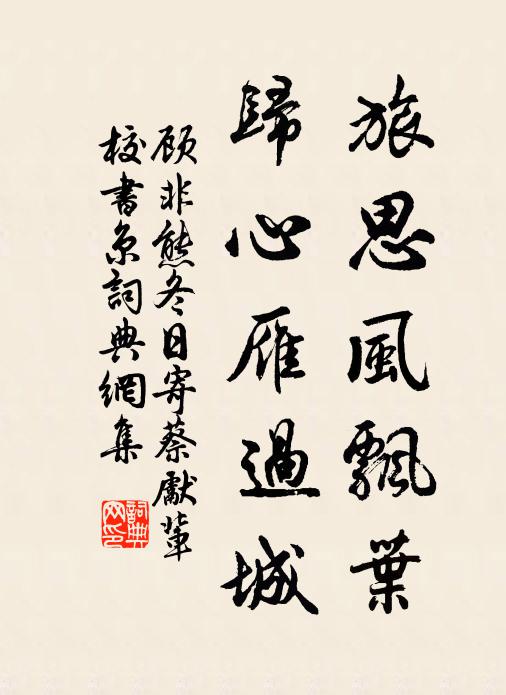 旅思風飄葉
歸心雁過城
顧非熊冬日寄蔡獻輩
校書京詞典網集
詞典
网印